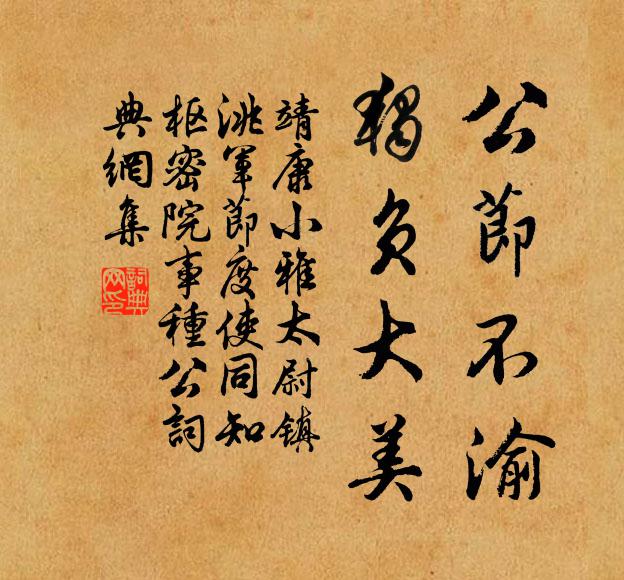 公節不渝
獨負大美
靖康小雅太尉鎮
洮軍節度使同知
枢密院事種公詞
典網集
詞典網印